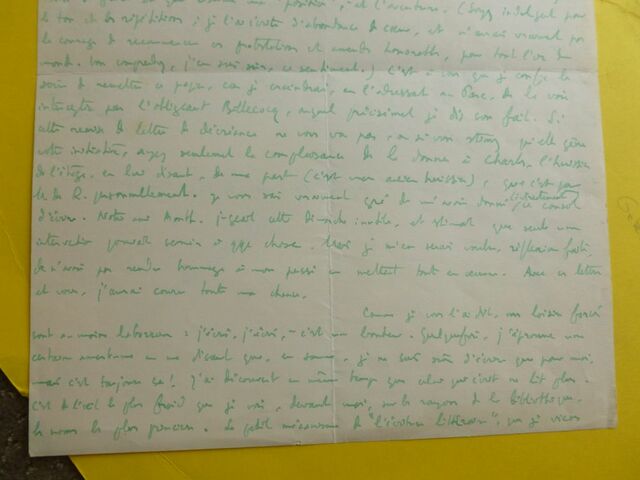 "position", et l'aventure. (Soyez indulgent pour
le ton et les répétitions ; j'ai écrit d'abondance de cœur, et n'aurais vraiment pas
le courage de recommencer ces protestations et amendes honorables, pour tout l'or du
monde. Vous comprendrez, j'en suis sûr, ce sentiment.) C'est à vous que je confie le
soin de remettre ce papier, car je craindrais, en l'adressant au Parc, de le voir
intercepté par l'obligeant Billecocq, auquel précisément je dis son fait. Si
cette remise de lettre de ne vous va pas, ou si vous estimez qu'elle gêne
votre initiative, ayez seulement la complaisance de la donner à Charles, l'huissier
de l'étage, en lui disant, de ma part (c'est mon ancien huissier), que c'est pour
le de R. personnellement. Je vous sais vraiment gré de m'avoir donné le conseil
d'écrire. Notre ami jugeait cette démarche inutile, et estimait que seule une
intervention pouvait servir à qque chose. Mais je m'en serais voulu, réflexion faite,
de n'avoir pas rendu hommage à mon passé en mettant tout en œuvre. Avec ces lettres
et vous, j'aurai couru toute ma chance.
Comme je vous l'ai dit, mes loisirs forcés
sont au moins laborieux : j'écris, j'écris, – c'est un bonheur. Quelquefois, j'éprouve une
certaine amertume en me disant que, en somme, je ne suis sûr d'écrire que pour moi,
mais c'est toujours ça ! J'ai découvert en même temps que celui qui écrit ne lit plus.
C'est de l'œil le plus froid que je vois, devant moi, sur les rayons de la bibliothèque,
les noms les plus précieux. Le petit mécanisme de "l'écriture littéraire", que je viens